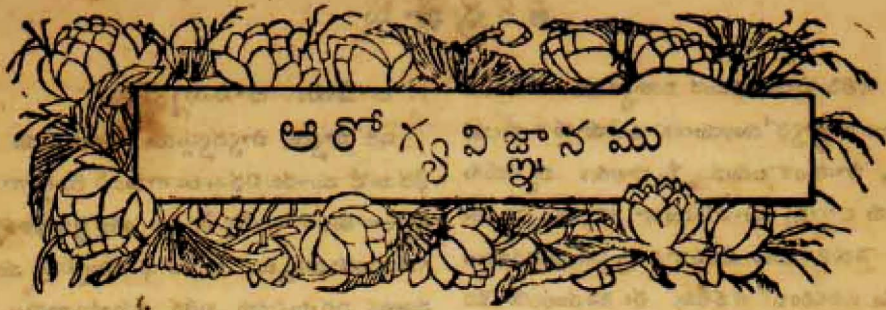 ఆరోగ్యవిజ్ఞానము